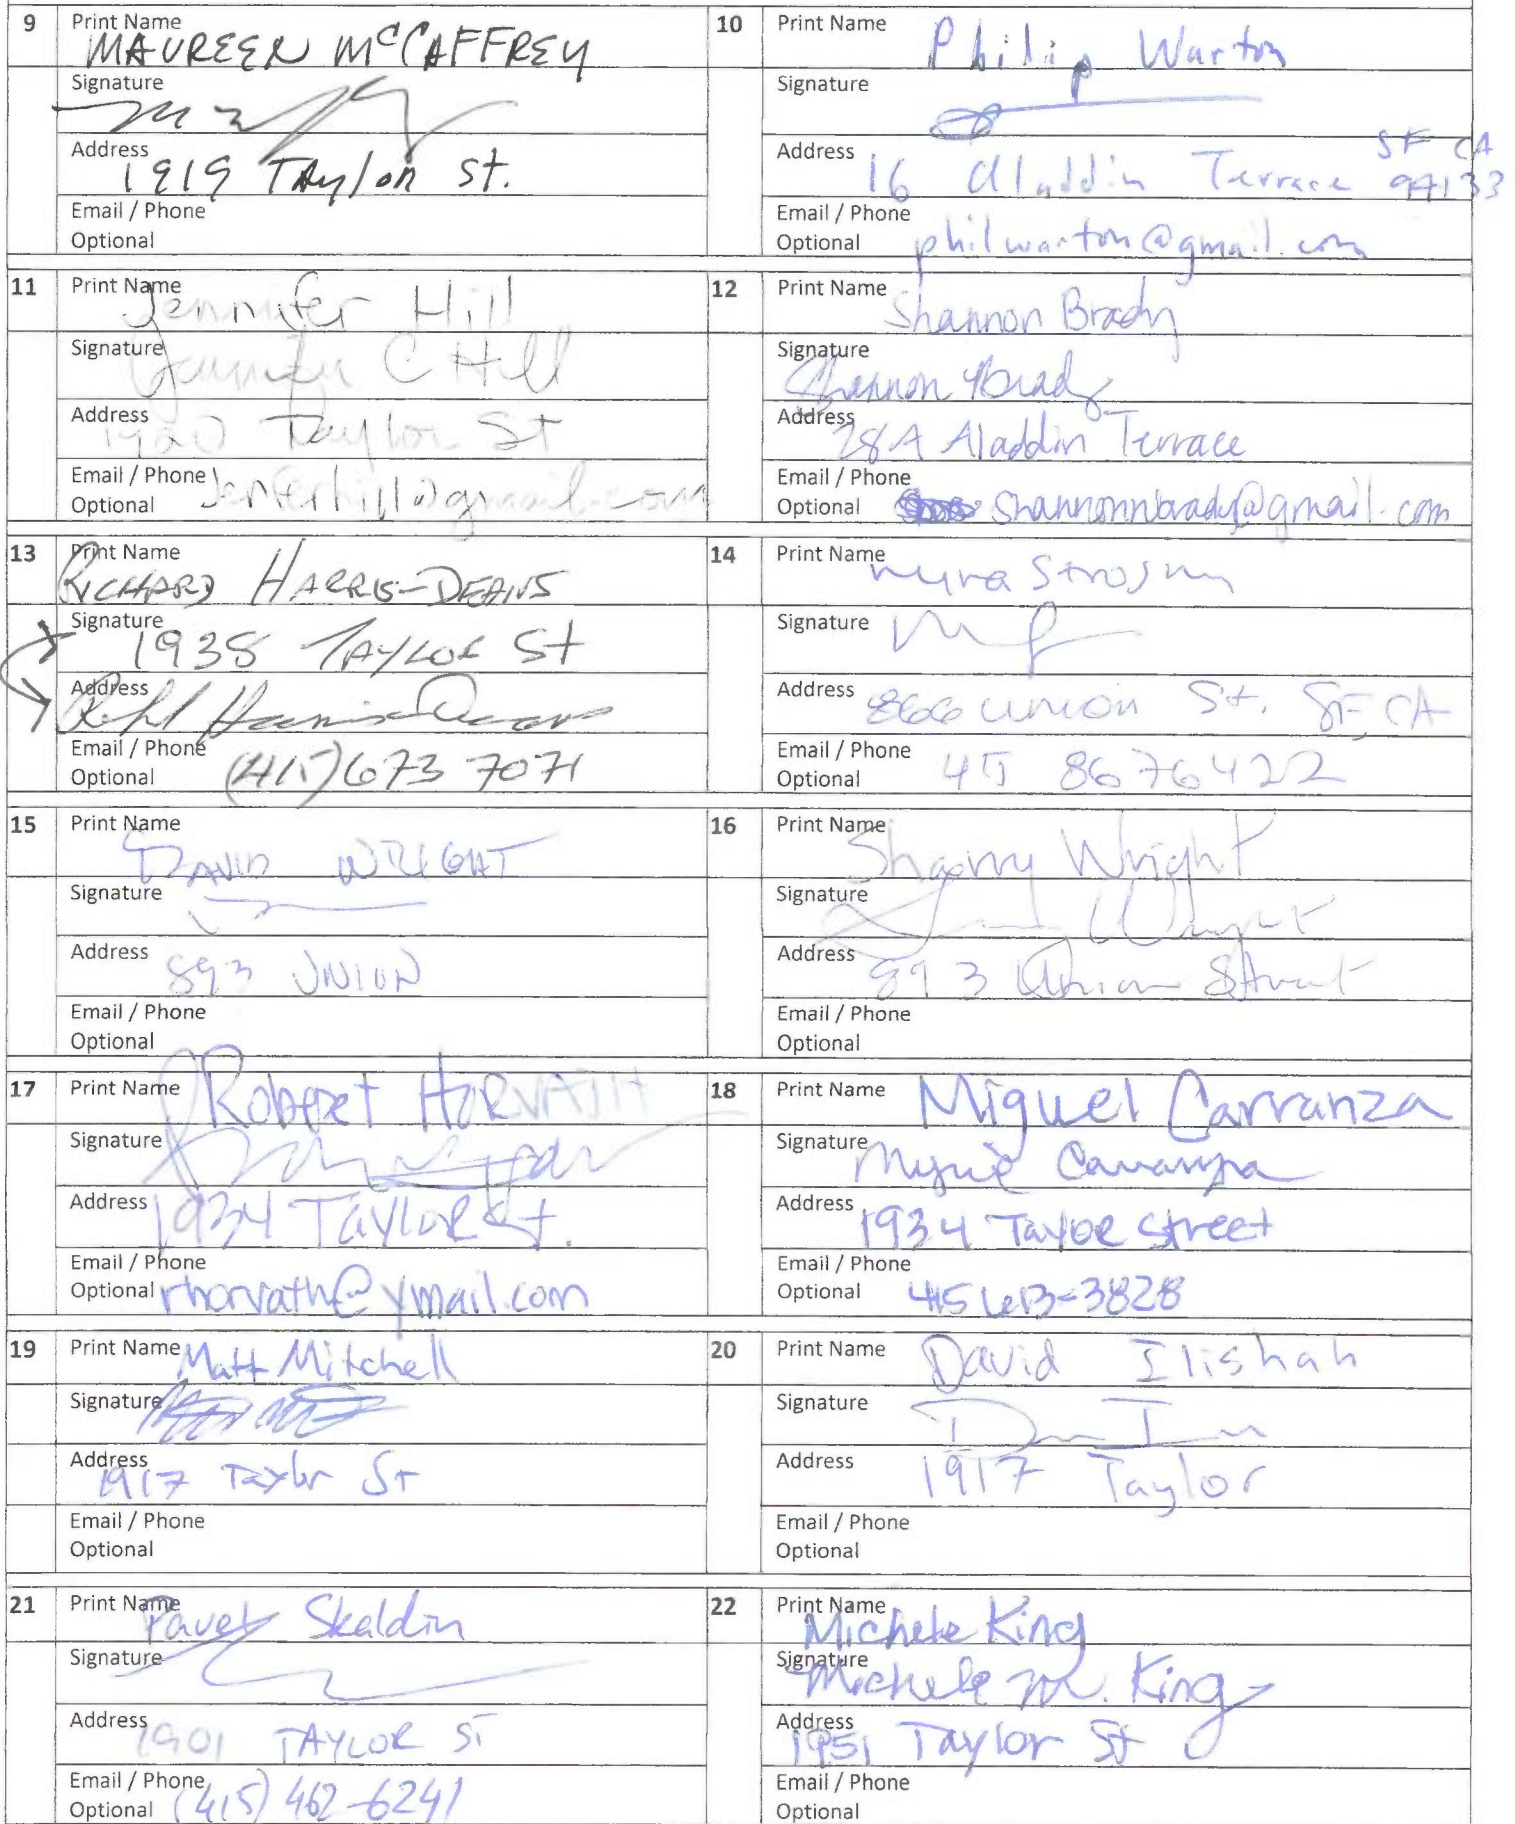 9
Print Name
MAUREEN McCAFFREY
Signature
Address
1919 TAylor St.
Email / Phone
Optional
10
Print Name
Philip Warton
Signature
Address
16 Aladdin Terrace SF CA 94133
Email / Phone
Optional philwarton@gmail.com
11
Print Name
Jennifer Hill
Signature
Jennifer C Hill
Address
1920 Taylor St
Email / Phone
Optional
12
Print Name
Shannon Brady
Signature
Shannon Brady
Address
28A Aladdin Terrace
Email / Phone
Optional shannonnbrady@gmail.com
13
Print Name
RICHARD HARRIS-DEANS
Signature
1938 TAYLOR St
Address
Email / Phone
Optional (415) 673 7071
14
Print Name
myra
Signature
Address
866 union St. SF, CA
Email / Phone
Optional 415 8676422
15
Print Name
DAVID WRIGHT
Signature
Address
893 UNION
Email / Phone
Optional
16
Print Name
Wright
Signature
Wright
Address
893 Union Street
Email / Phone
Optional
17
Print Name
Robert HORVATH
Signature
Address
1934 TAYLOR St.
Email / Phone
Optional rhorvath@ymail.com
18
Print Name
Miguel Carranza
Signature
Miguel Carranza
Address
1934 Taylor Street
Email / Phone
Optional
19
Print Name
Matt Mitchell
Signature
Address
1917 Taylor ST
Email / Phone
Optional
20
Print Name
David Ilishah
Signature
Address
1917 Taylor
Email / Phone
Optional
21
Print Name
Pavel Skaldin
Signature
Address
1901 TAYLOR ST
Email / Phone
Optional (415) 462-6241
22
Print Name
Michele King
Signature
Michele M. King
Address
1951 Taylor St
Email / Phone
Optional